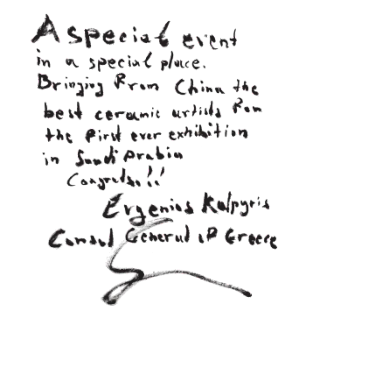 A special event
in a special place.
Bringing from China the
best ceramic artists for
the first ever exhibition
in Saudi Arabia
Congrats!!
Evgenios Kalpyris
Consul General of Greece